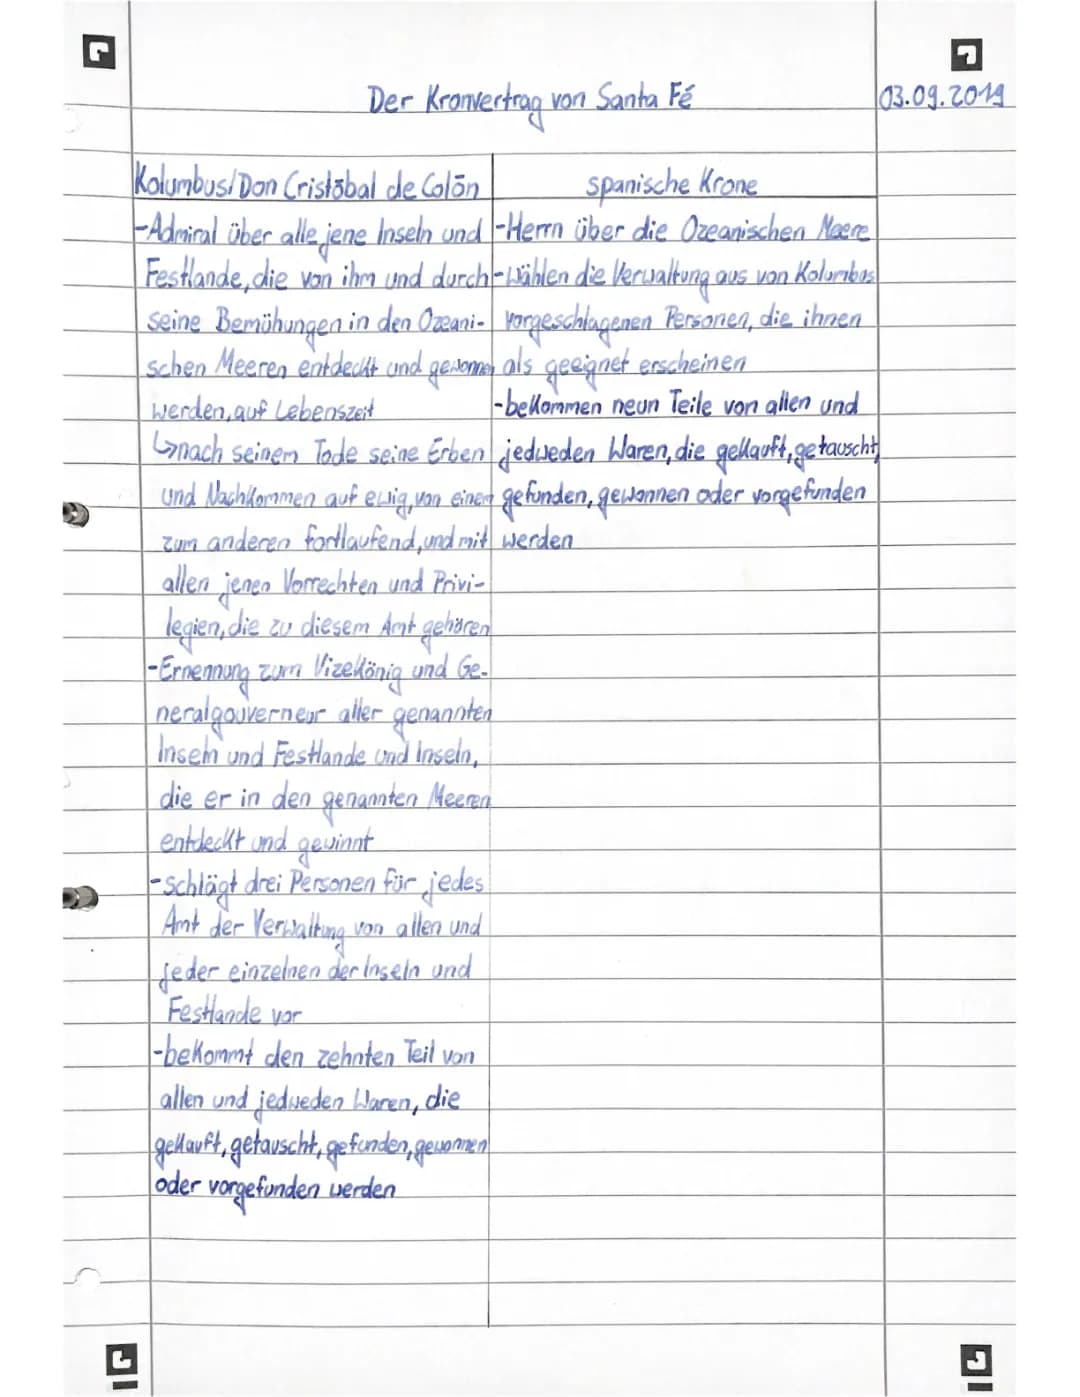 Der Kronvertrag von Santa Fé
03.09.2019
Kolumbus/Don Cristōbal de Colōn
-Admiral über alle jene Inseln und
Festlande, die von ihm und durch
seine Bemühungen in den Ozeani-
schen Meeren entdeckt und gewonnen
werden, auf Lebenszeit
↳nach seinem Tode seine Erben
und Nachkommen auf ewig, von einem
zum anderen fortlaufend, und mit
allen jenen Vorrechten und Privi-
legien, die zu diesem Amt gehören
-Ernennung zum Vizekönig und Ge-
neralgouverneur aller genannten
Inseln und Festlande und Inseln,
die er in den genannten Meeren
entdeckt und gewinnt
-schlägt drei Personen für jedes
Amt der Verwaltung von allen und
jeder einzelnen der Inseln und
Festlande vor
-bekommt den zehnten Teil von
allen und jedweden Waren, die
gekauft, getauscht, gefunden, gewonnen
oder vorgefunden werden
spanische Krone
-Herrn über die Ozeanischen Meere
-wählen die Verwaltung aus von Kolumbus
vorgeschlagenen Personen, die ihnen
als geeignet erscheinen
-bekommen neun Teile von allen und
jedweden Waren, die gekauft, getauscht,
gefunden, gewonnen oder vorgefunden
werden